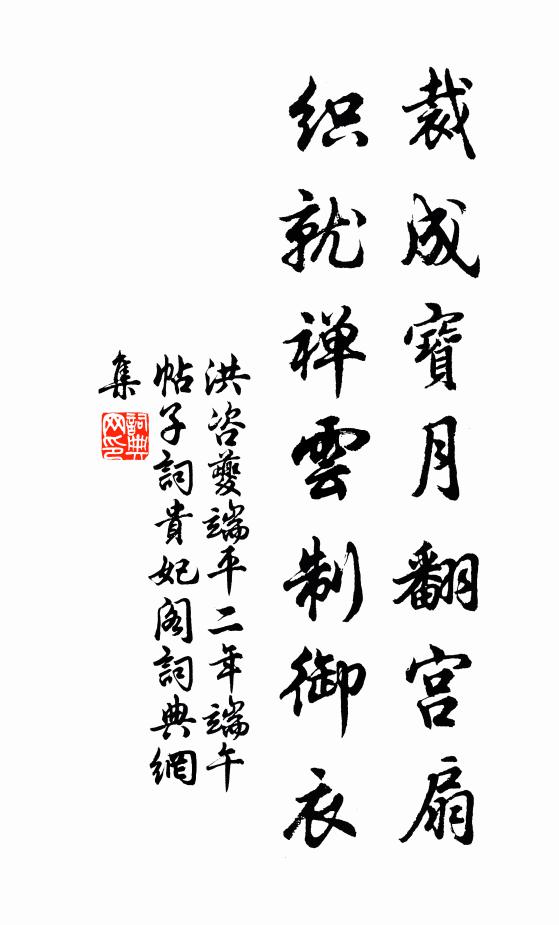 裁成寶月翻宮扇
织就禅雲制御衣
洪咨夔端平二年端午
帖子詞貴妃阁詞典網
集
詞典
网印